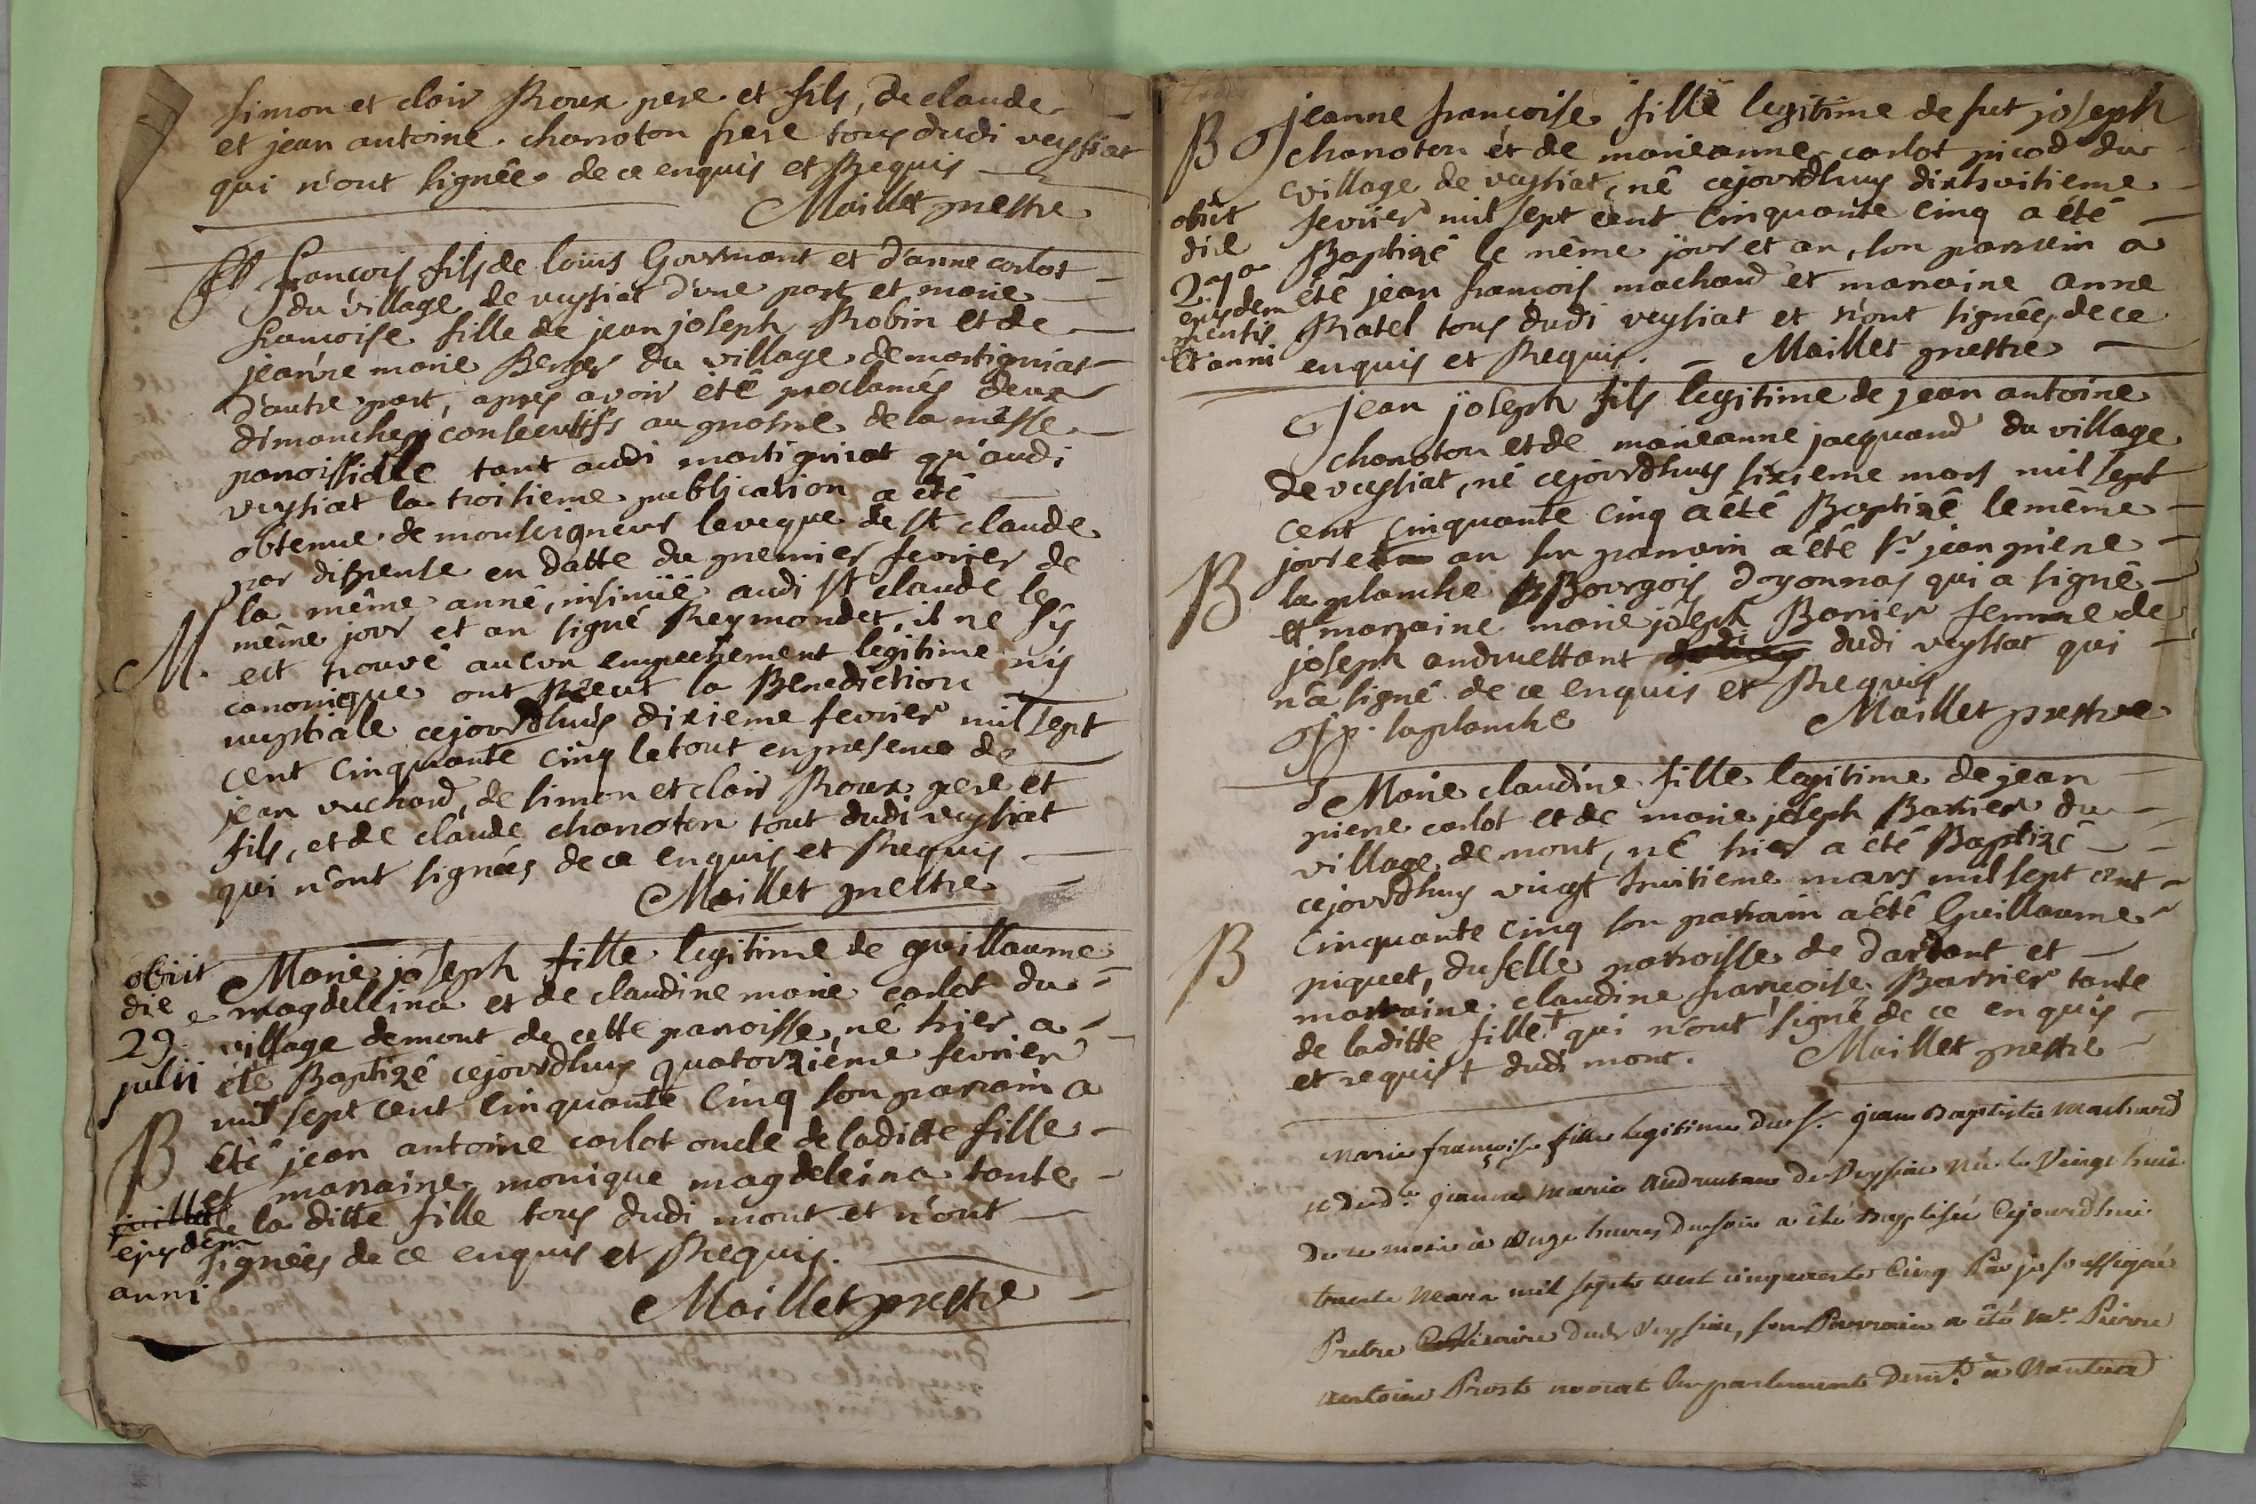 simon et clair Roux pere et fils, de claude
et jean antoine chanoton frere tous dudi veyssiat
qui n'ont signée de ce enquis et Requis
Maillet prestre
françois fils de loüis Gouvernant et d'anne carlot
du village de veysiat d'une part et marie
francoise fille de jean joseph Robin et de
jeanne marie Berger du village de martigniat
d'autre part, apres avoir été proclamés deux
dimanches consecutifs au prosne de la messe
paroissialle tant audi martigniat qu'audi
veysiat la troisieme publication a été
obtenue de monseigneur leveque de st claude
par dispense en datte du premier fevrier de
la même anné, insinüé audi st claude le
même jour et an signé Reymondet, il ne s'y
M. est trouvé aucun empechement legitime ny
canonique ont Receut la Benediction
nuptiale cejourdhuis dixieme fevrier mil sept
cent cinquante cinq le tout en presence de
jean vuchard, de simon et clair Roux pere et
fils, et de claude chanoton tout dudi veysiat
qui n'ont signées de ce enquis et Requis
Maillet prestre
obiit
die
29
julii
Marie joseph fille legitime de guillaume
magdellina et de claudine marie carlot du
village demont de cette paroisse, né hier a
été Baptizé cejourdhuy quatorzième fevrier
mil sept cent cinquante cinq son parrain a
B
été jean antoine carlot oncle de laditte fille
et marraine monique magdeleina tante
juillet
de la ditte fille tous dudi mont et n'ont
ejusdem
signées de ce enquis et Requis.
anni
Maillet prestre
B
jeanne francoise fille legitime de fut joseph
chanoton et de marieanne carlot picod du
village de veysiat, né cejourdhuy dixhuitieme
obiit
die
27a
ejusdem
mentis
et anni
fevrier mil sept cent cinquante cinq a été
Baptizé le même jour et an, son parrain a
été jean françois machard et marraine anne
Ratel tous dudi veysiat et n'ont signées de ce
enquis et Requis. Maillet prestre
jean joseph fils legitime de jean antoine
chanoton et de marieanne jacquand du village
de veysiat, né cejourdhuy sixieme mars mil sept
cent cinquante cinq a été Baptizé le même
jour et an son parrain a été sr jean pierre
B
la planche Bourgois doyonnas qui a signé
et marraine marie joseph Barrier femme de
joseph andruettant dudi veysiat qui
n'a signé de ce enquis et Requis
jp. laplanche Maillet prestre
Marie claudine fille legitime de jean
pierre carlot et de marie joseph Barrier du
village demont, né hier a été Baptizé
cejourdhuy vingt huitieme mars mil sept cent
cinquante cinq son parrain a été Guillaume
B
piquet, duselle paroisse de dartant et
marraine claudine françoise Barrier tante
de laditte fille † qui n'ont signé de ce enquis
et requis † dudi mont. Maillet prestre
Marie françoise fille legitime du s. jean Baptiste Machard
et de dle jeanne Marie Andruetan de Veyssiat née le Vingt huit
du ce mois à onze heures du soir a été Baptisée Cejourdhui
trente Mars mil sept cent cinquante Cinq Par je soussigné
Pretre Vicaire dudt Veyssiat, son Parrain a été mr. Pierre
Antoine Prost avocat au parlement demt. à Nantua